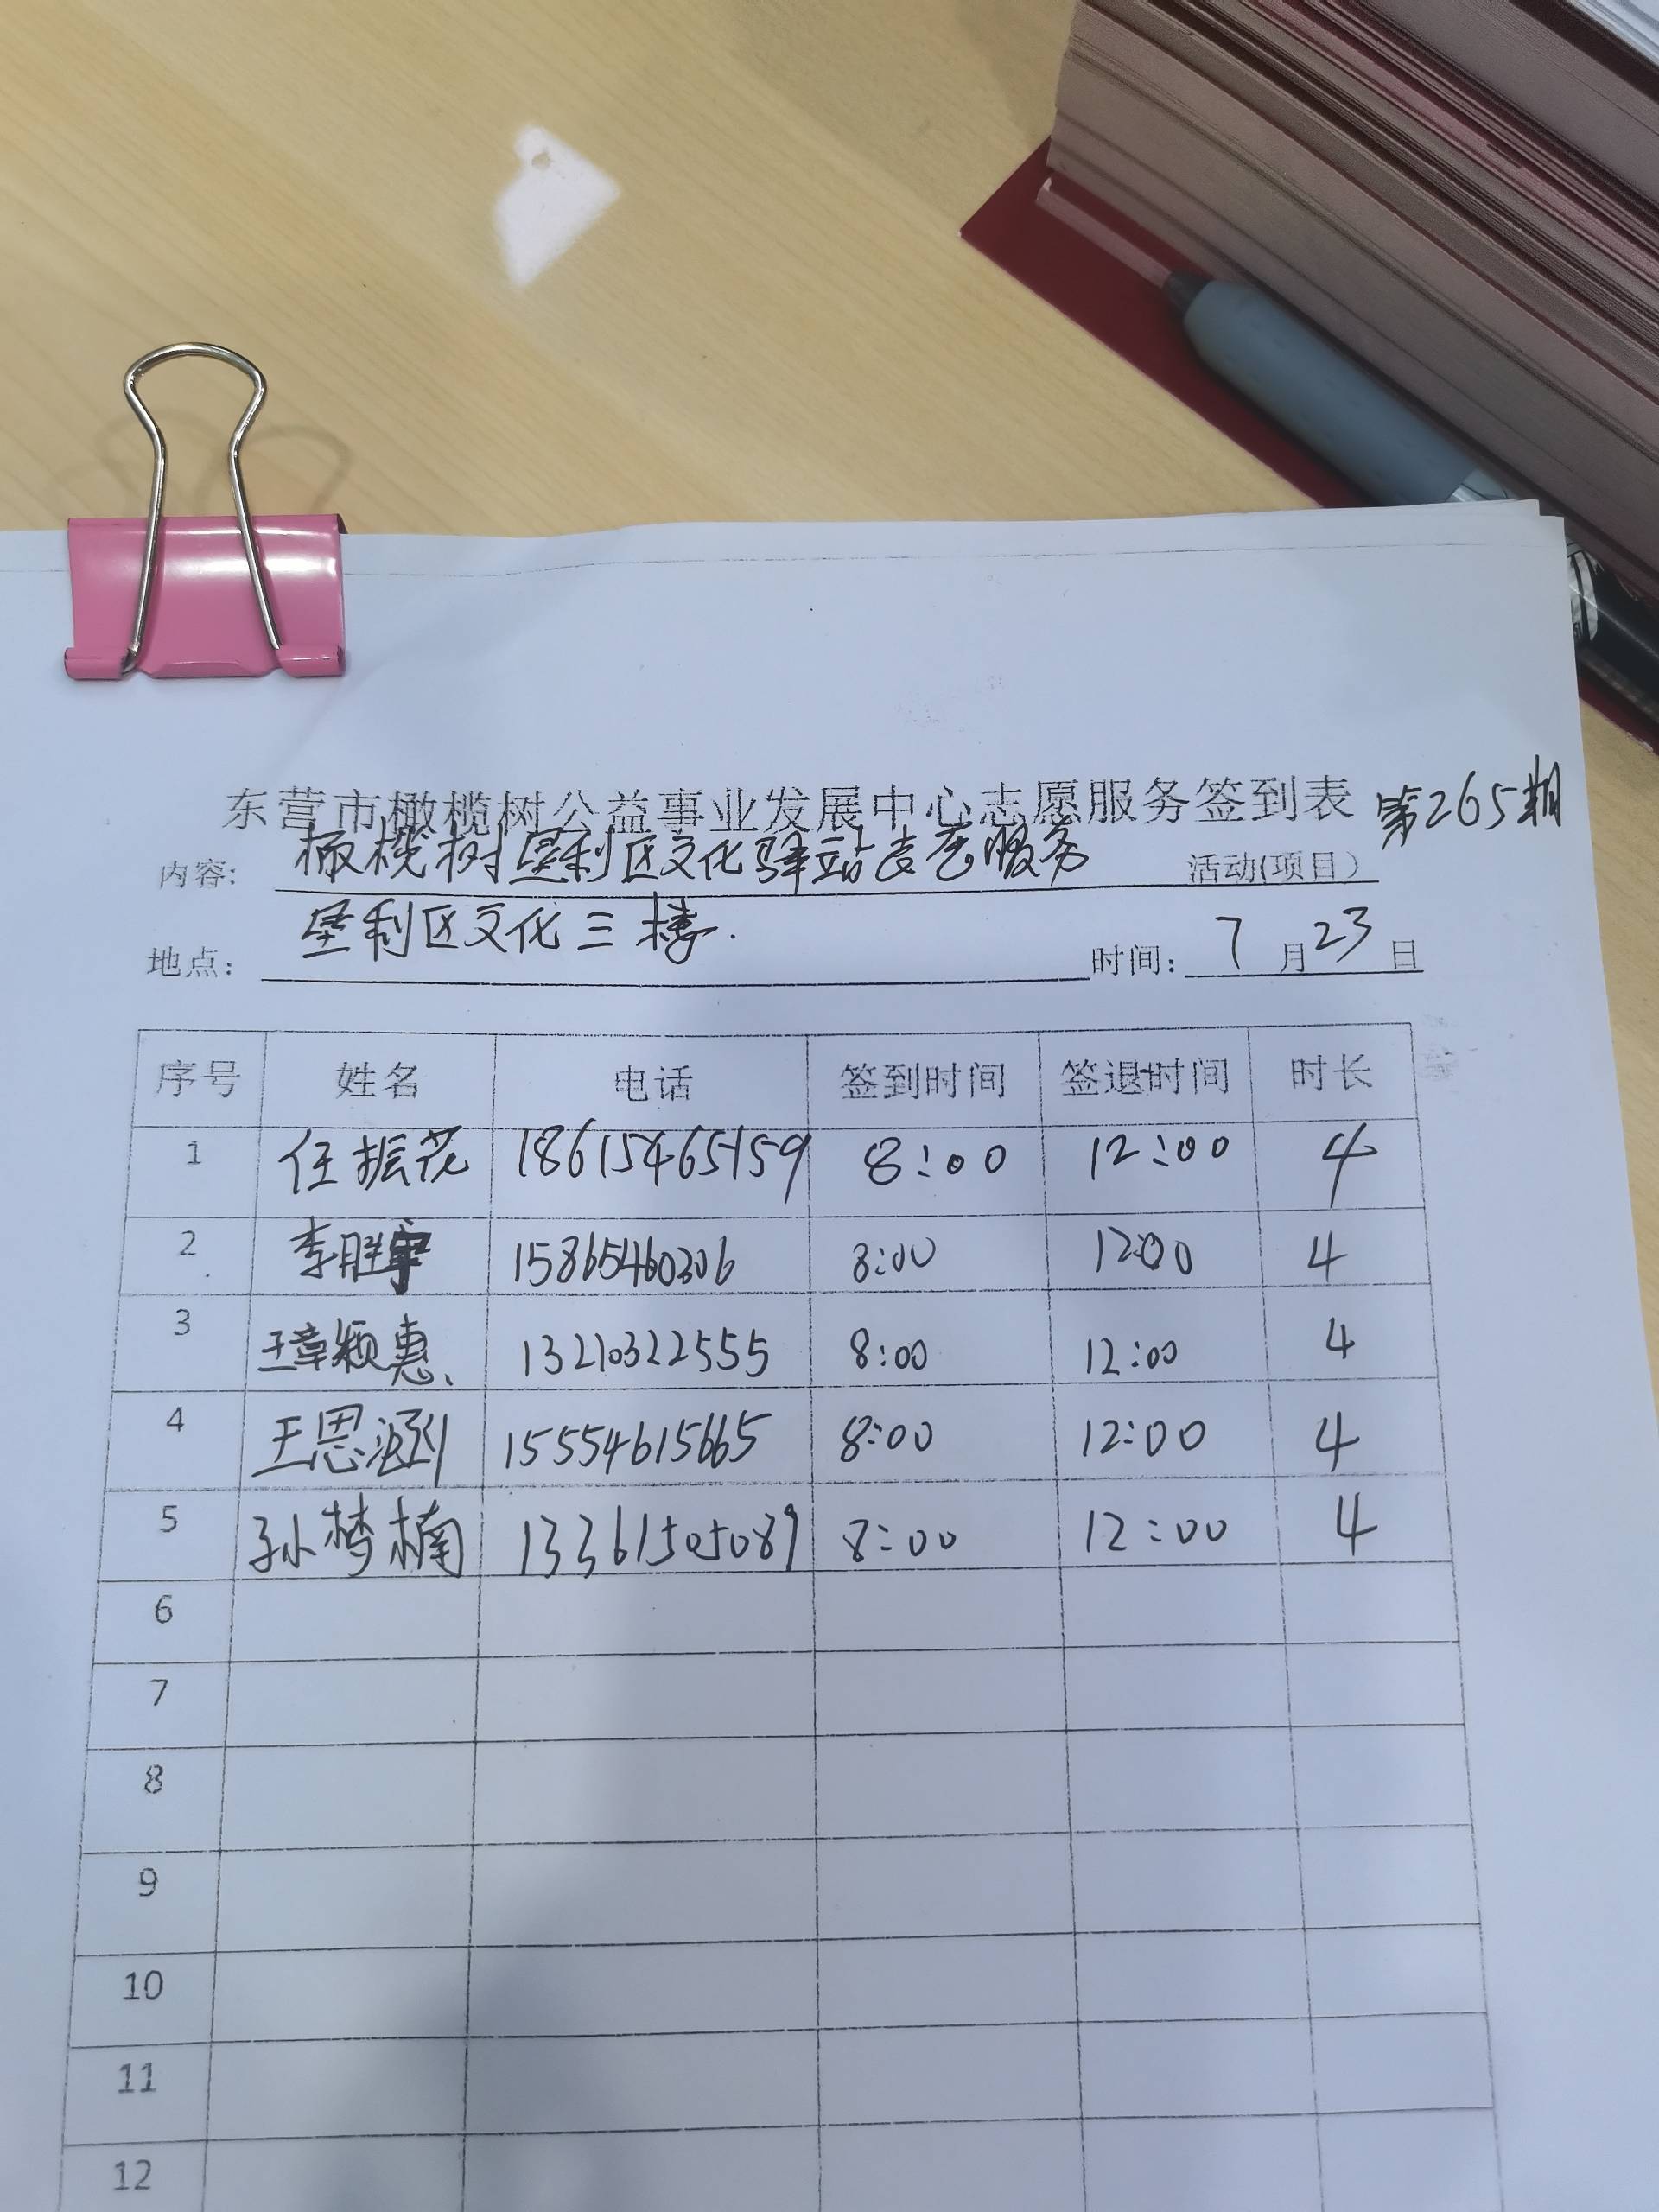 东营市橄榄树公益事业发展中心志愿服务签到表 第265期
内容: 橄榄树垦利区文化驿站志愿服务 活动(项目)
地点: 垦利区文化三楼. 时间: 7月23日
序号 姓名 电话 签到时间 签退时间 时长
1 任振花 18615465159 8:00 12:00 4
2 李胜宇 15865460306 8:00 12:00 4
3 颖惠 13210322555 8:00 12:00 4
4 王思涵 15554615665 8:00 12:00 4
5 孙梦楠 13361505089 8:00 12:00 4
6
7
8
9
10
11
12